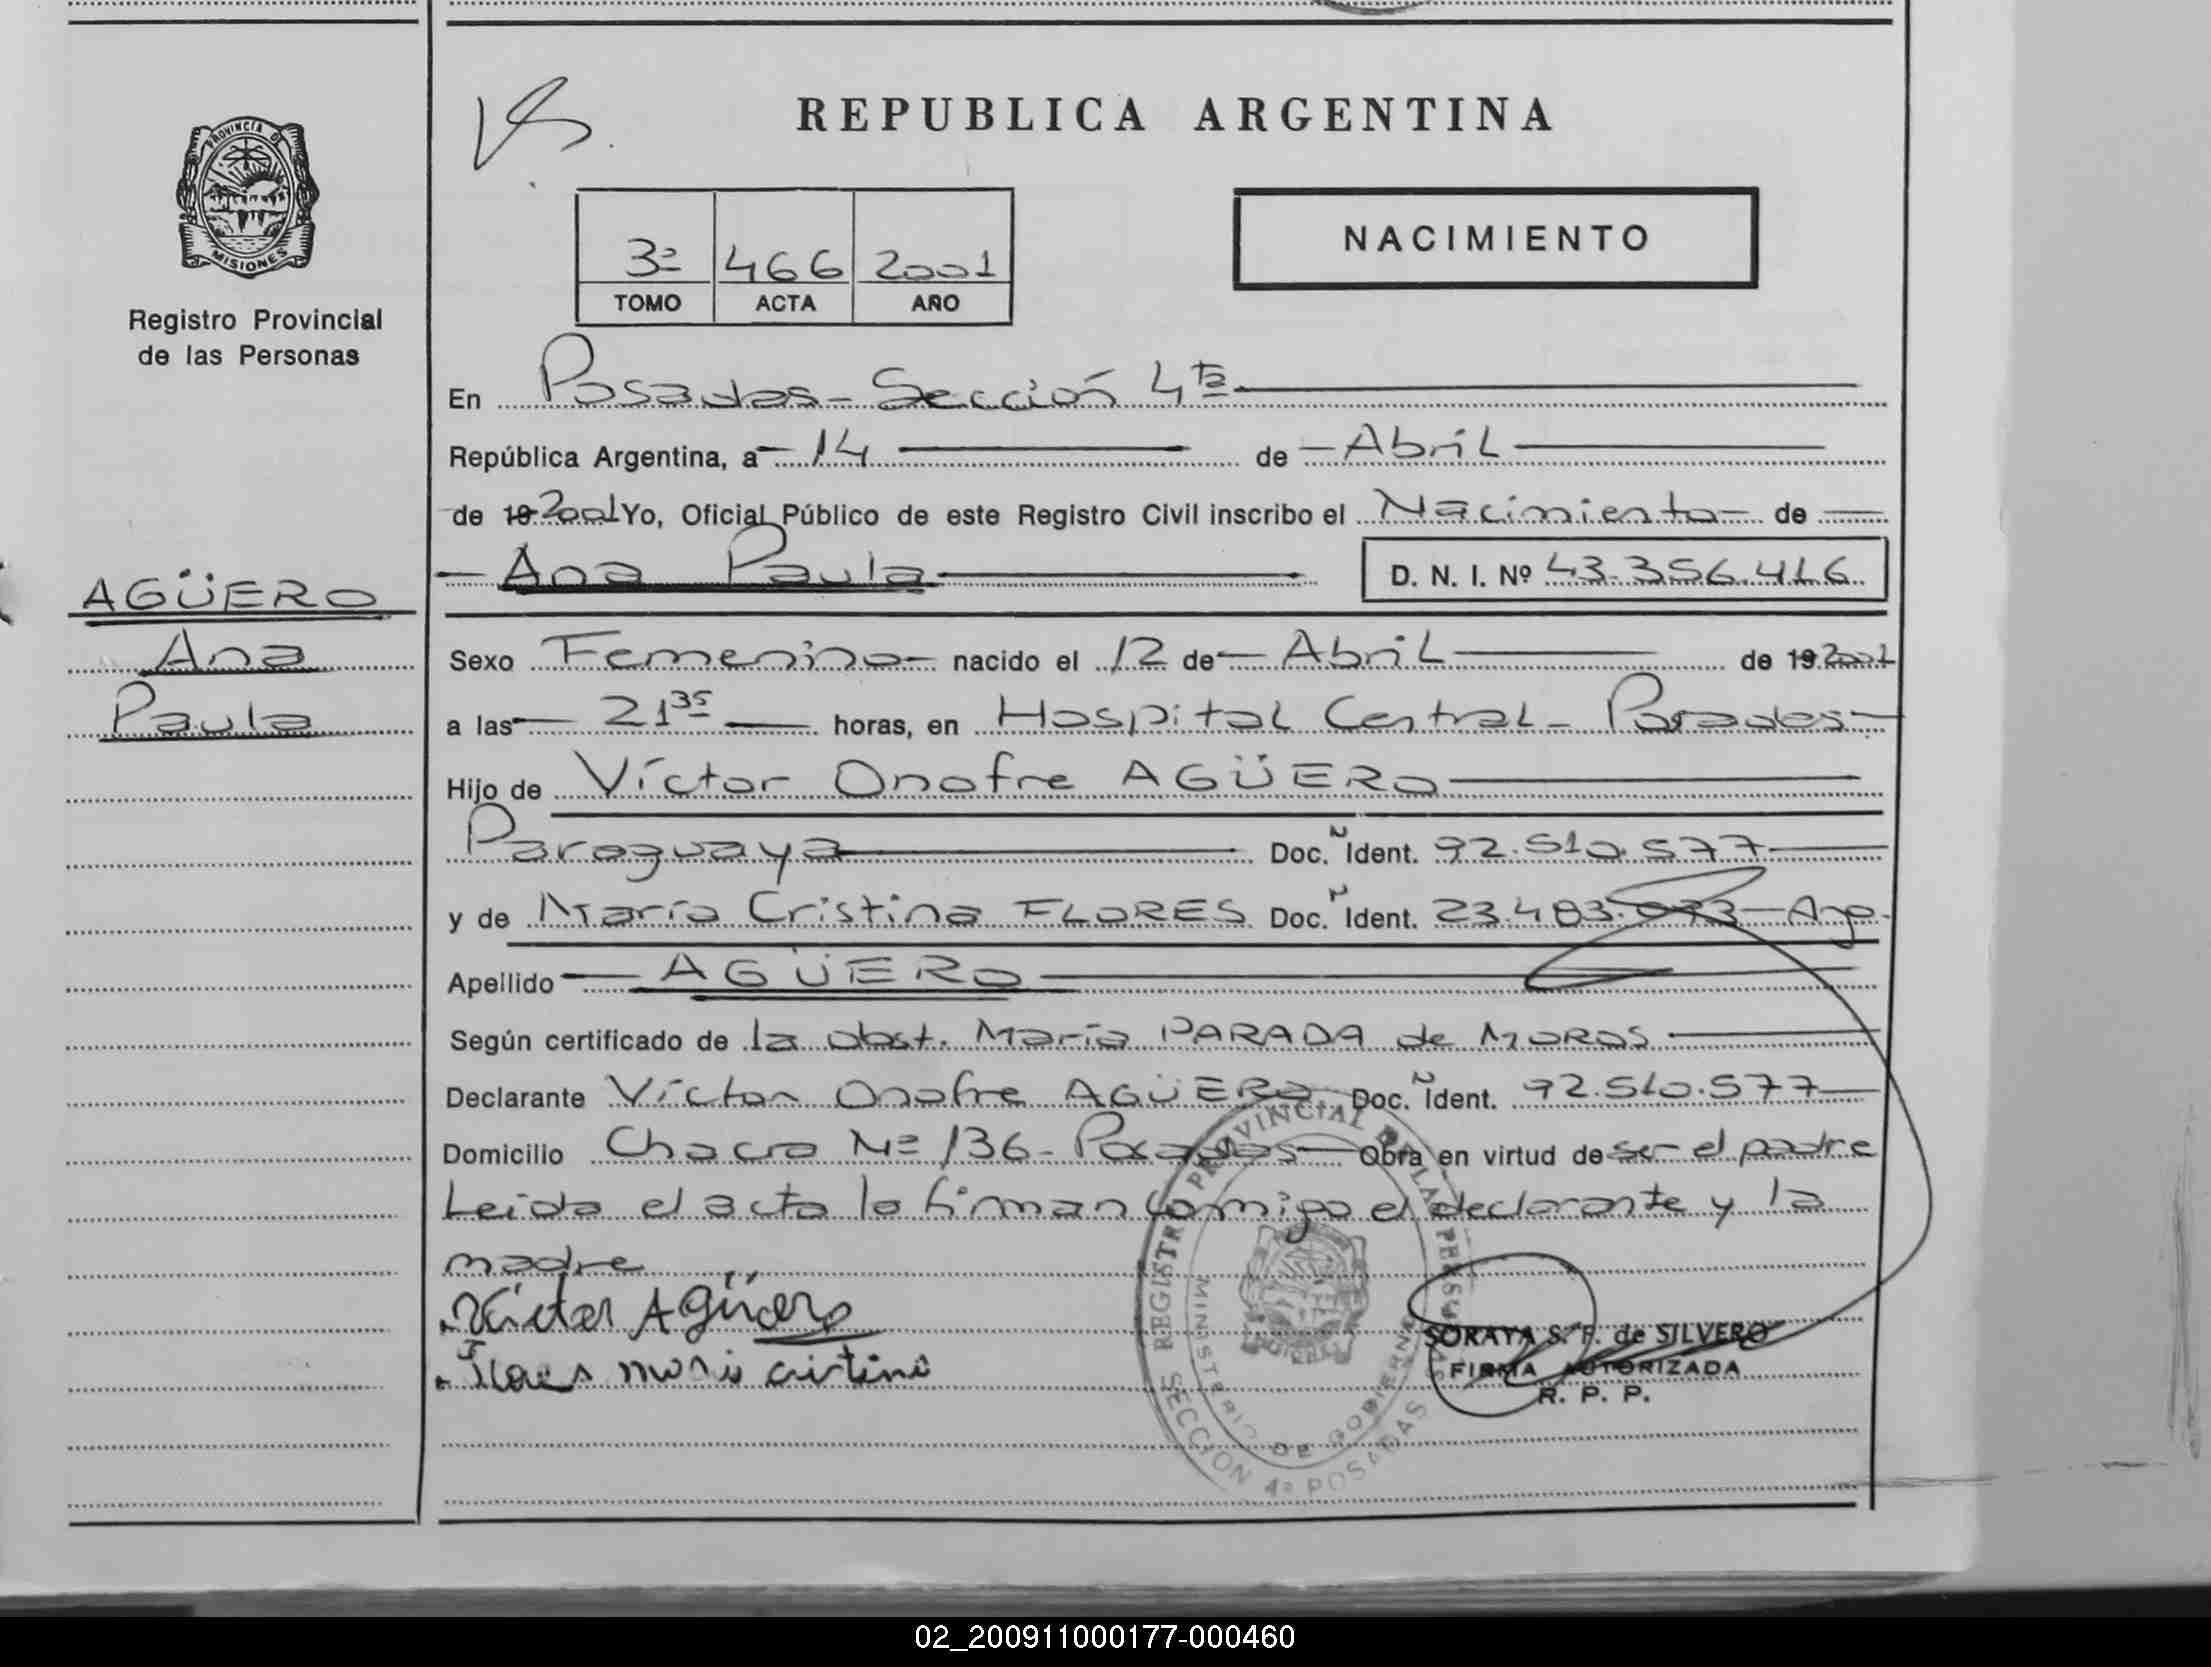 REPUBLICA ARGENTINA
PROVINCIA DE
MISIONES
Registro Provincial
de las Personas
NACIMIENTO
3ª 466 2001
TOMO ACTA AÑO
En Posadas - Sección 4ta
República Argentina, a 14 de Abril
de 19 2001 Yo, Oficial Público de este Registro Civil inscribo el Nacimiento de
Ana Paula D. N. I. Nº 43.356.416
AGÜERO
Ana
Paula
Sexo Femenino nacido el 12 de Abril de 19 2001
a las 21 35 horas, en Hospital Central - Posadas
Hijo de Víctor Onofre AGÜERO
Paraguaya Doc. Ñ Ident. 92.510.577
y de María Cristina FLORES Doc. Ident. 23.483. - Arg.
Apellido AGÜERO
Según certificado de la obst. María PARADA de MOROS
Declarante Víctor Onofre AGÜERO Doc. Ident. 92.510.577
Domicilio Chacra Nº 136 - Posadas Obra en virtud de ser el padre
Leida el acta la firman comigo el declarante y la
madre
Víctor Agüero
Flores maria cristina
REGISTRO PROVINCIAL DE LAS PERSONAS
MINISTERIO DE GOBIERNO
SECCION 4ª POSADAS
SORAYA S. F. de SILVERO
FIRMA AUTORIZADA
R. P. P.
02_200911000177-000460